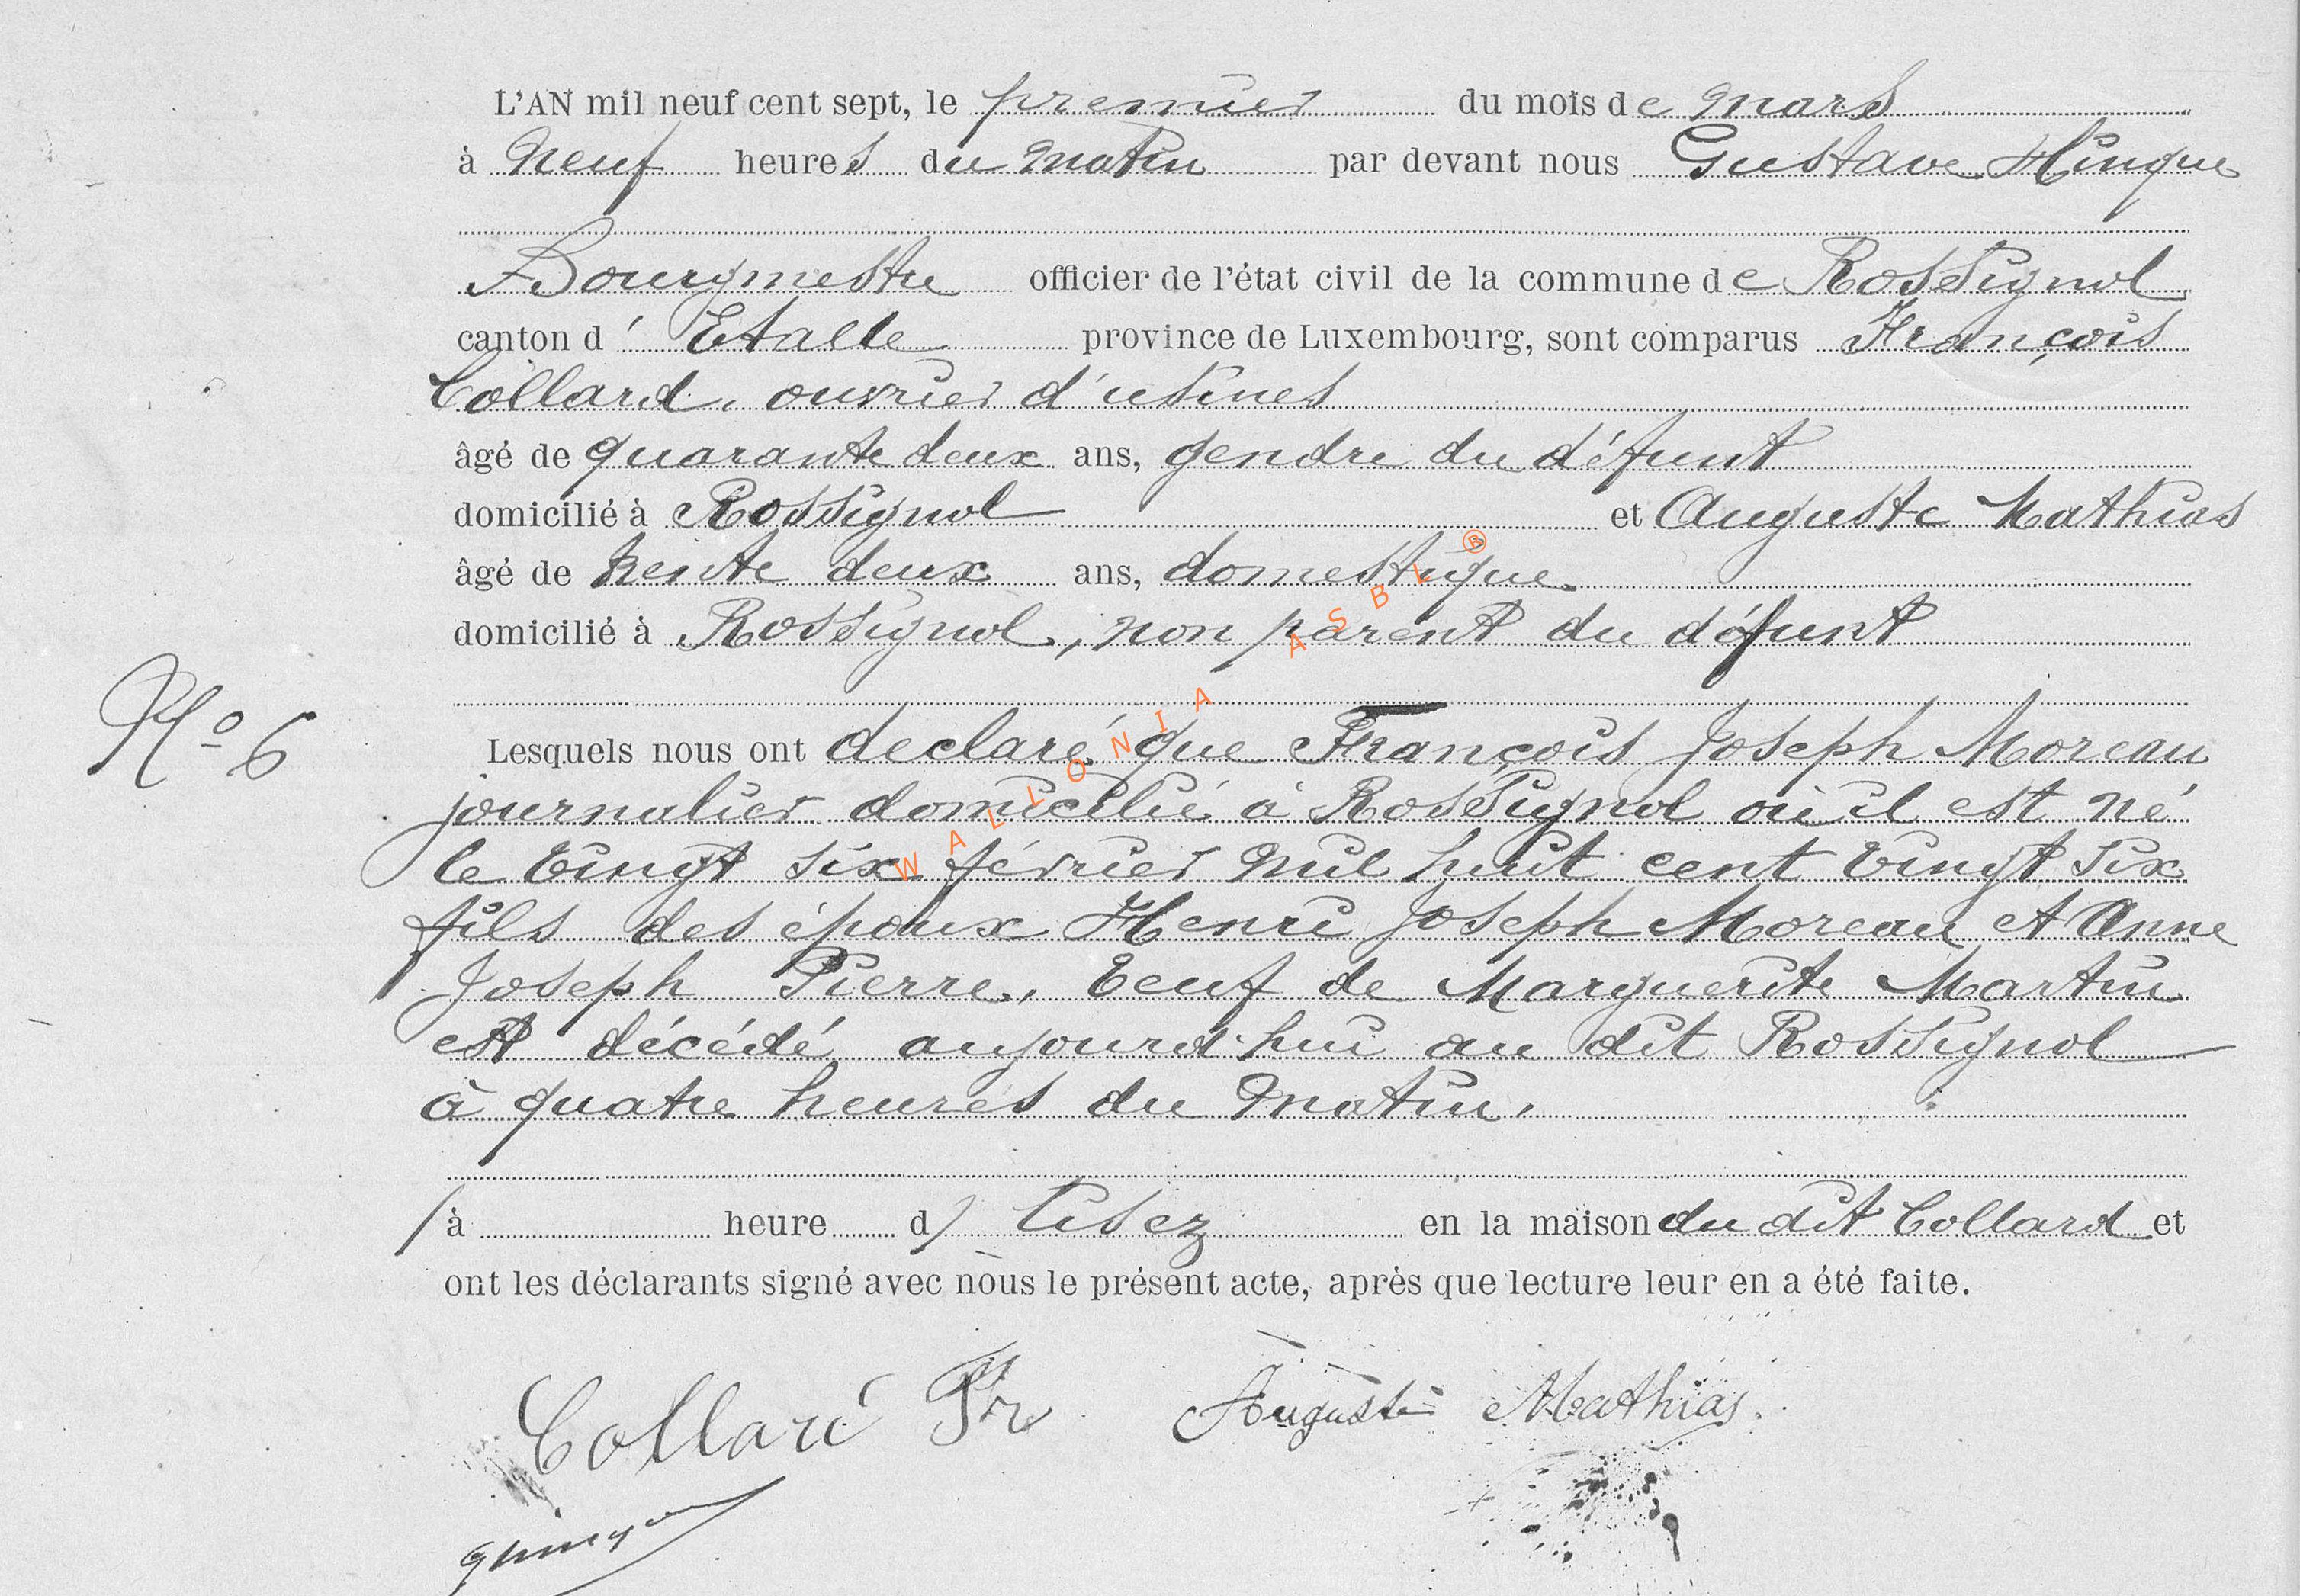 L'AN mil neuf cent sept, le premier du mois de Mars
à Neuf heures du Matin par devant nous Gustave Hinque
Bourgmestre officier de l'état civil de la commune de Rossignol
canton d' Etalle province de Luxembourg, sont comparus François
Collard, ouvrier d'usines
âgé de quarante deux ans, gendre du défunt
domicilié à Rossignol et Auguste Mathias
âgé de trente deux ans, domestique
domicilié à Rossignol, non parent du défunt
No 6
Lesquels nous ont declaré que François Joseph Moreau
journalier domicilié à Rossignol où il est né
le vingt six février mil huit cent vingt six
fils des époux Henri Joseph Moreau et Anne
Joseph Pierre, veuf de Marguerite Martin
est décédé aujourd'hui au dit Rossignol
à quatre heures du Matin,
(à heure d) lisez en la maison du dit Collard et
ont les déclarants signé avec nous le présent acte, après que lecture leur en a été faite.
Collard Fr Auguste Mathias.
WALLONIA ASBL ®